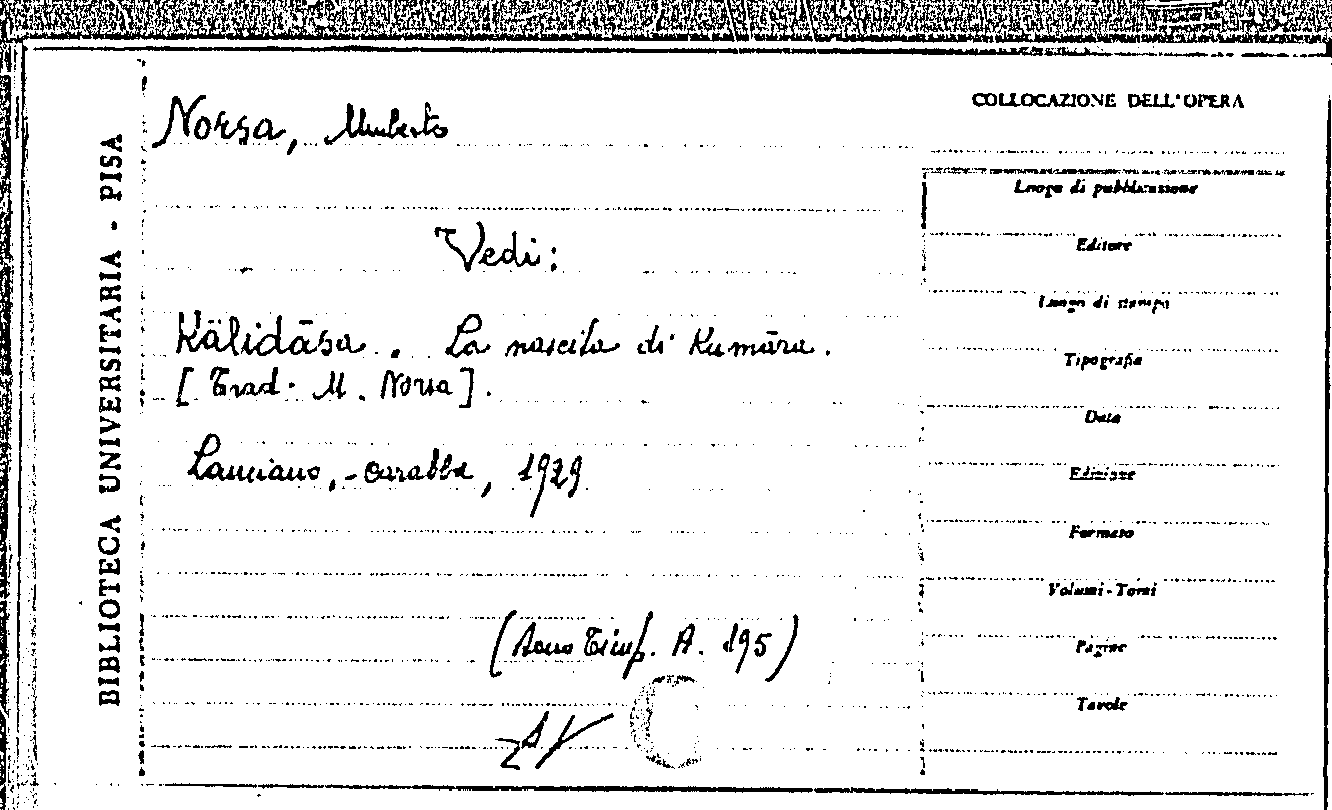 BIBLIOTECA UNIVERSITARIA - PISA
Norsa, Umberto
Vedi:
Kālidāsa. La nascita di Kumāra.
[Trad. U. Norsa].
Lanciano, Carabba, 1929
A. 195)
COLLOCAZIONE DELL'OPERA
Luogo di pubblicazione
Editore
Luogo di stampa
Tipografia
Data
Edizione
Formato
Volumi - Tomi
Pagine
Tavole